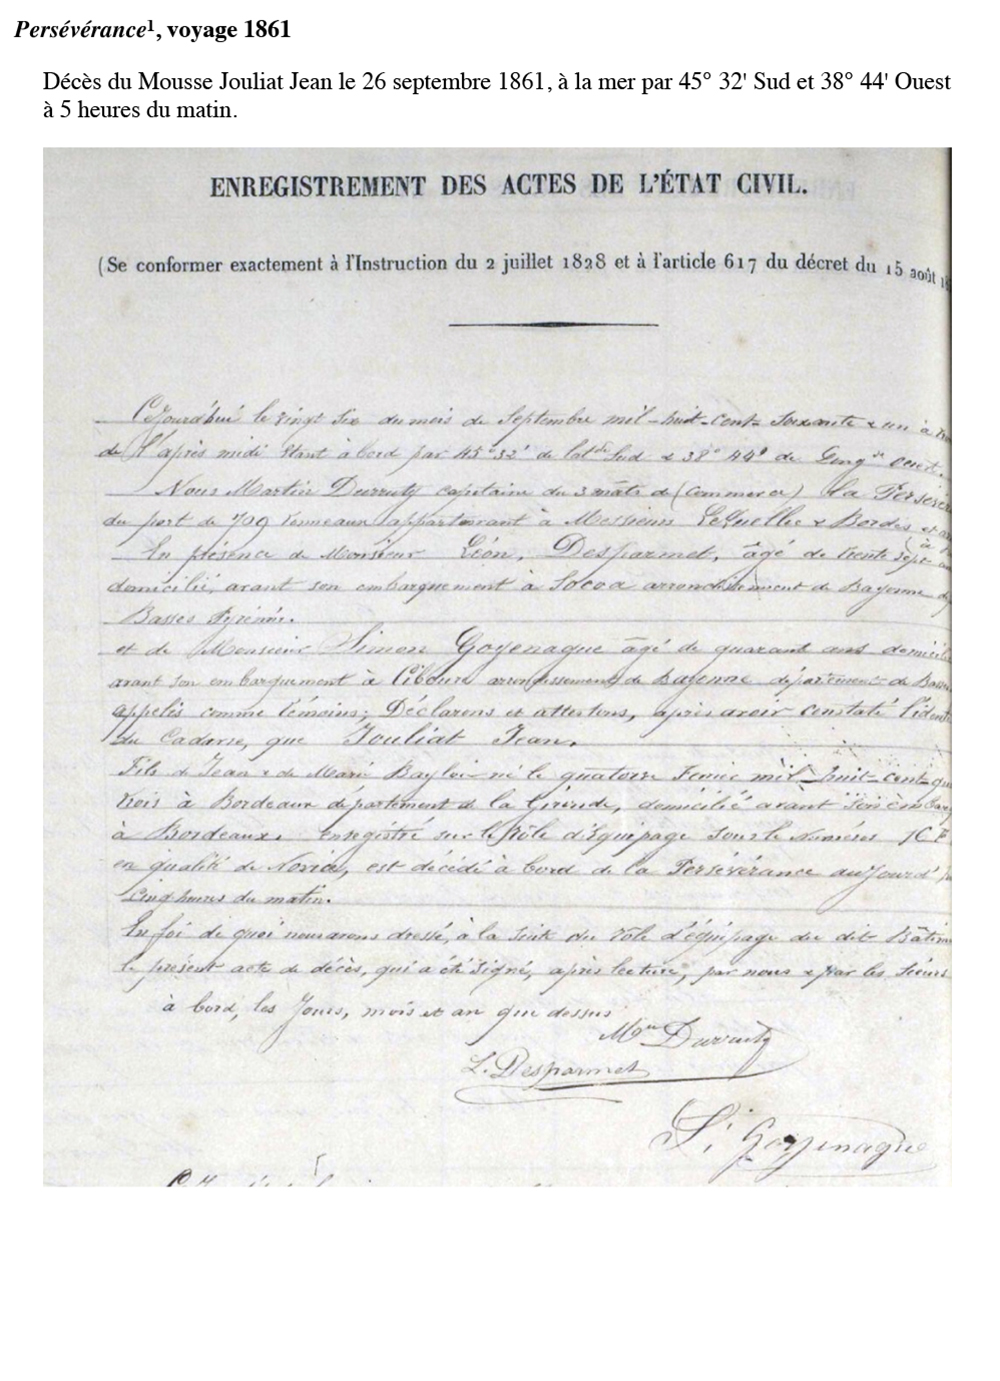 Persévérance¹, voyage 1861
Décès du Mousse Jouliat Jean le 26 septembre 1861, à la mer par 45° 32' Sud et 38° 44' Ouest
à 5 heures du matin.
ENREGISTREMENT DES ACTES DE L'ÉTAT CIVIL.
(Se conformer exactement à l'Instruction du 2 juillet 1828 et à l'article 617 du décret du 15 août 18
Cejourd'hui le vingt six du mois de Septembre mil-huit-cent-soixante & un à
de l'après midi étant à bord par 45° 32' de latde Sud & 38° 44' de Longde Ouest.
Nous Martin Durruty capitaine du 3 mâts de (Commerce) La Persévér
du port de 709 tonneaux appartenant à Messieurs LeQuellec & Bordes et
En présence de Monsieur Léon, Desparmet, âgé de trente sept
domicilié, avant son embarquement à Socoa arrondissement de Bayonne
Basses Pyrénées.
et de Monsieur Simon Goyenague âgé de quarant ans domicili
avant son embarquement à Ciboure arrondissement de Bayonne département de Basses
appelés comme témoins; Déclarons et attestons, après avoir constaté l'identi
du Cadavre, que Jouliat Jean,
Fils de Jean & de Marie né le quatorze Fevrier mil huit-cent-qu
trois à Bordeaux département de la Gironde, domicilié avant son embar
à Bordeaux. enregistré sur le Rôle d'équipage sous le Numéros
en qualité de Novice, est décédé à bord de la Persévérance aujourd'
Cinq heures du matin.
En foi de quoi nous avons dressé, à la suite du rôle d'équipage du dit Bâtim
le présent acte de décès, qui a été signé, après lecture, par nous & par les Sieurs
à bord, les Jours, mois et an que dessus
Min Durruty
L. Desparmet
Si Goyenague